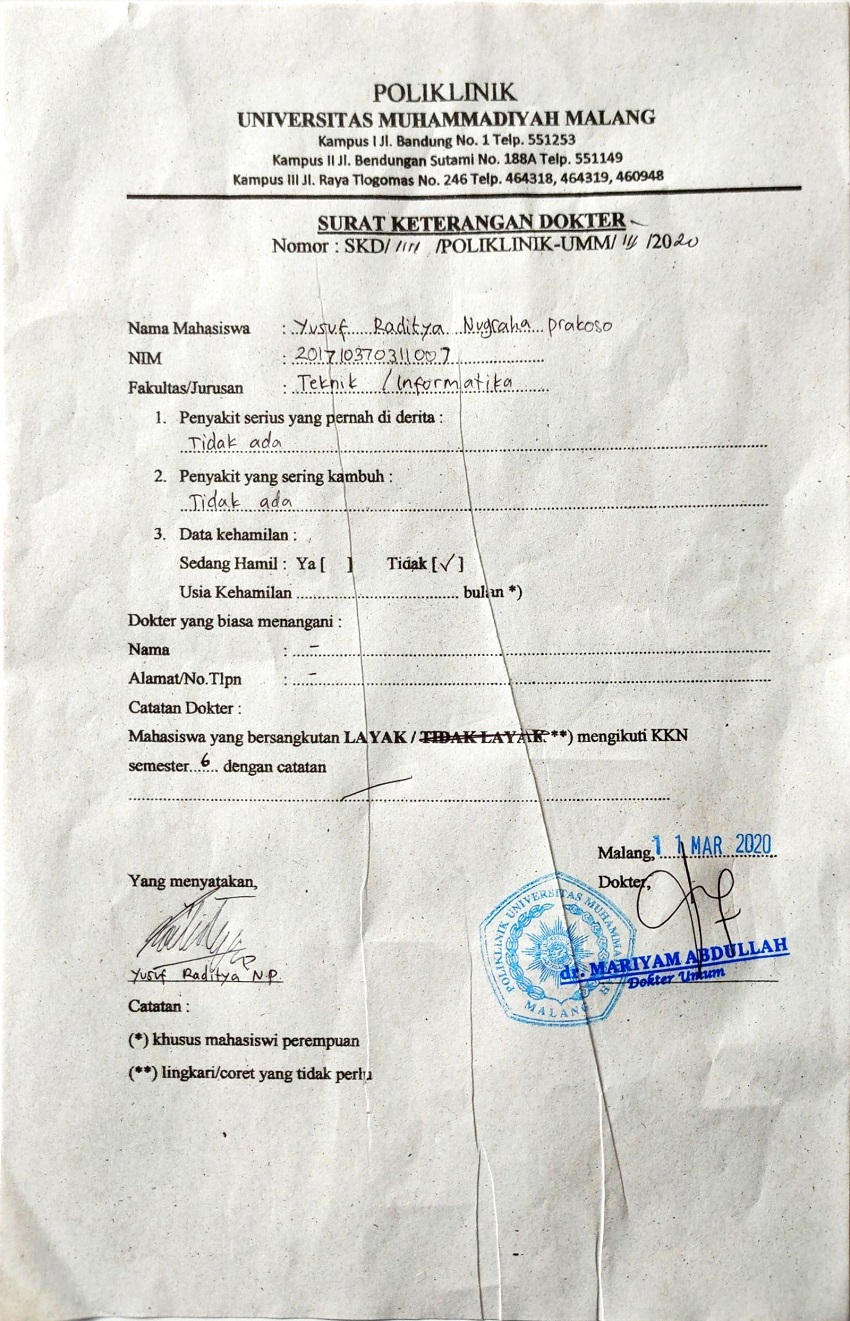 POLIKLINIK
UNIVERSITAS MUHAMMADIYAH MALANG
Kampus I Jl. Bandung No. 1 Telp. 551253
Kampus II Jl. Bendungan Sutami No. 188A Telp. 551149
Kampus III Jl. Raya Tlogomas No. 246 Telp. 464318, 464319, 460948
SURAT KETERANGAN DOKTER
Nomor : SKD/ /POLIKLINIK-UMM/ /2020
Nama Mahasiswa : Yusuf Raditya Nugraha prakoso
NIM : 201710370311007
Fakultas/Jurusan : Teknik / Informatika
1. Penyakit serius yang pernah di derita :
Tidak ada
2. Penyakit yang sering kambuh :
Tidak ada
3. Data kehamilan :
Sedang Hamil : Ya [ ] Tidak [✓]
Usia Kehamilan ................................... bulan *)
Dokter yang biasa menangani :
Nama : -
Alamat/No.Tlpn : -
Catatan Dokter :
Mahasiswa yang bersangkutan LAYAK / TIDAK LAYAK **) mengikuti KKN
semester 6 dengan catatan
Malang, 11 MAR 2020
Yang menyatakan, Dokter,
POLIKLINIK UNIVERSITAS MUHAMMA
MALANG
dr. MARIYAM ABDULLAH
Dokter Umum
Yusuf Raditya N.P.
Catatan :
(*) khusus mahasiswi perempuan
(**) lingkari/coret yang tidak perlu